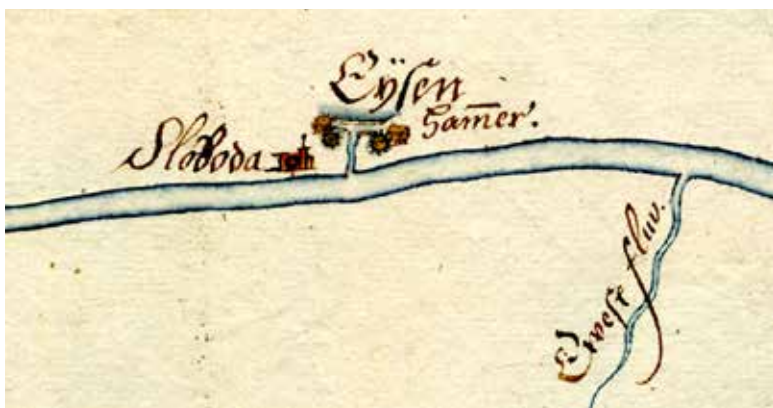 Eÿsen
Ham̄er.
Sloboda
Ewest fluv.